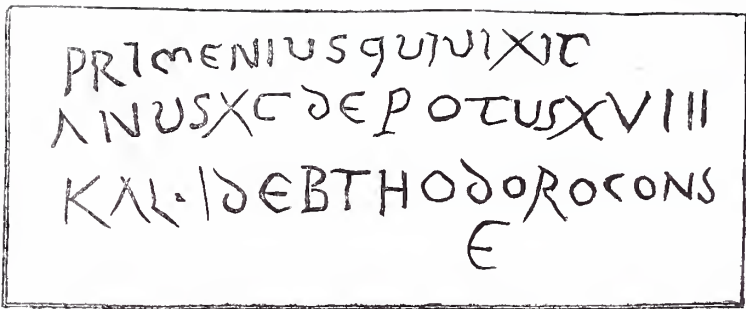 PRIMENIUSQUIUIXIT
ANUSXCDEPOTUSXVIII
KAL·IDEBTHODOROCONS
E